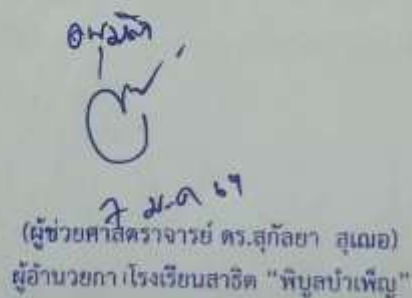 อนุมัติ
7 ม.ค 69
(ผู้ช่วยศาสตราจารย์ ดร.สุกัลยา สุเฌอ)
ผู้อำนวยกา โรงเรียนสาธิต "พิบูลบำเพ็ญ"